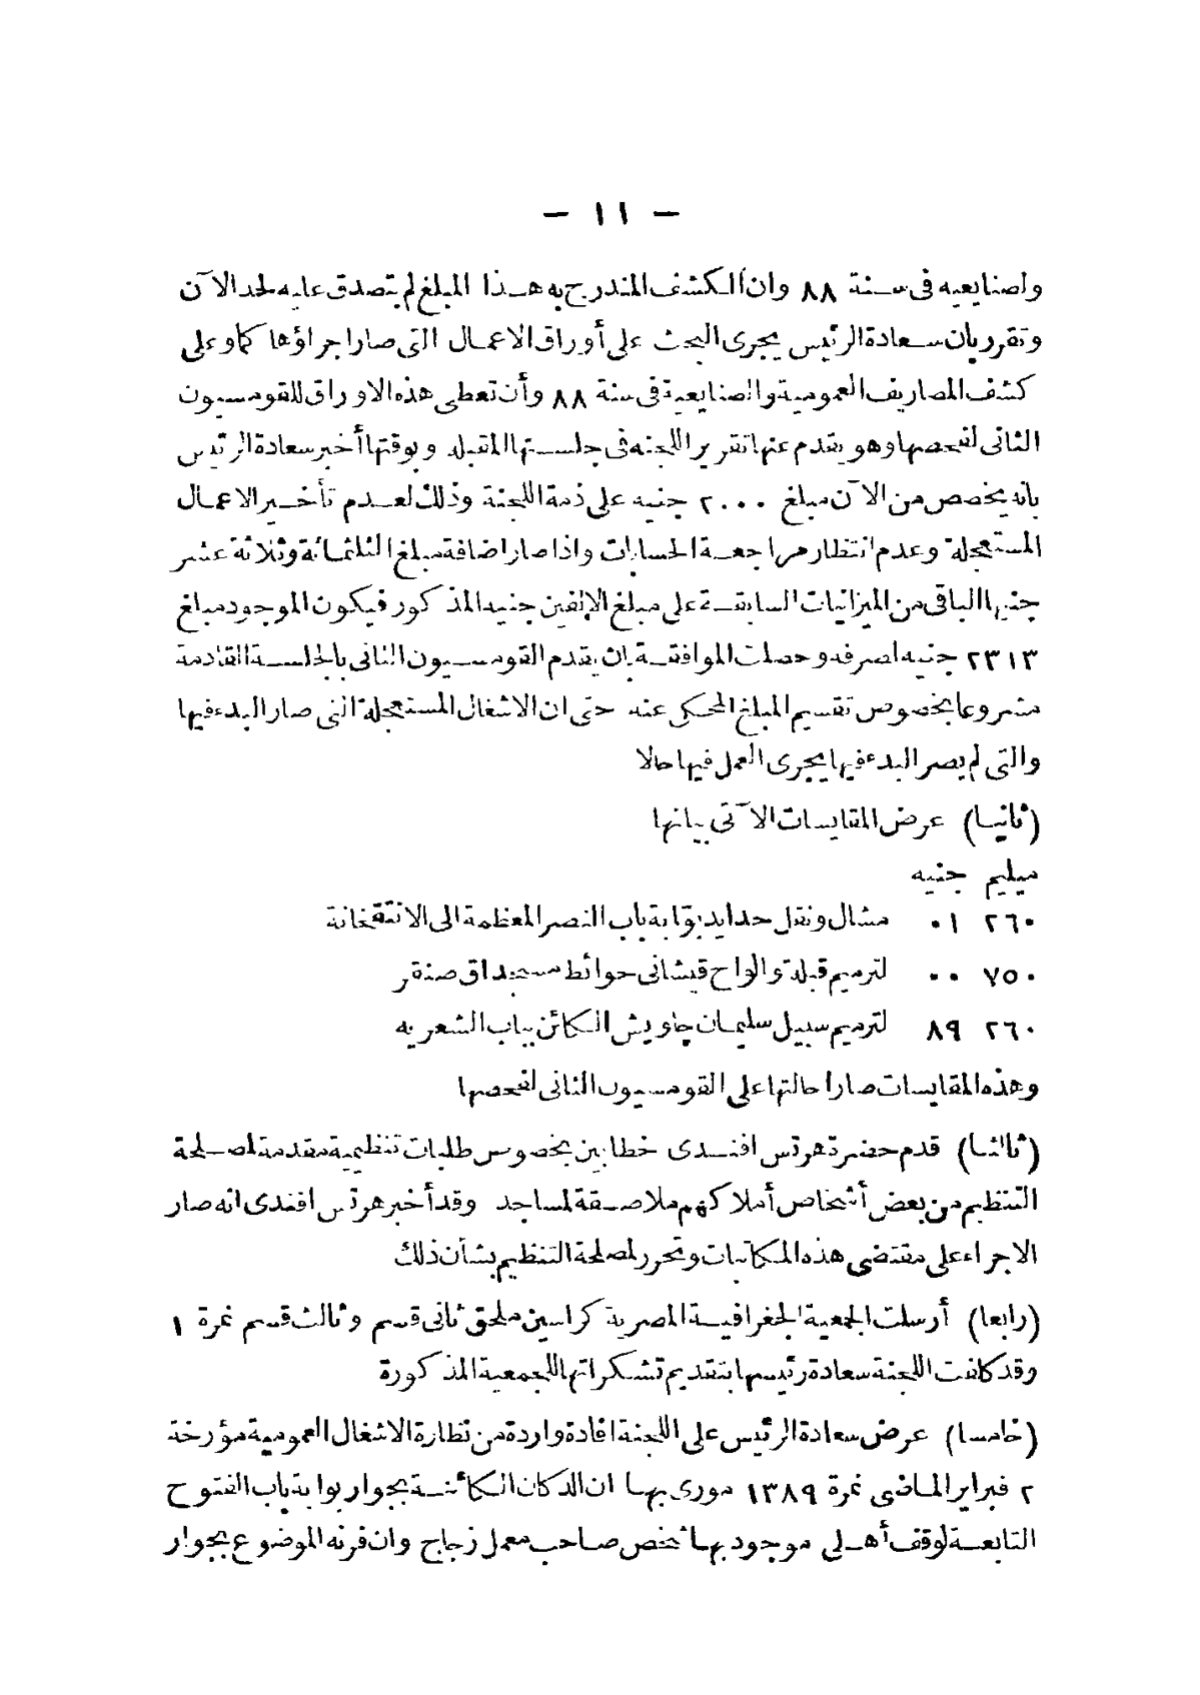 — ١١ —
واصنايعيه فى سنة ٨٨ وان الكشف المندرج به هذا المبلغ لم يتصدق عليه لحد الآن
وتقرر بان سعادة الرئيس يجرى البحث على أوراق الاعمال التى صار اجراؤها كما وعلى
كشف المصاريف العمومية والصنايعية فى سنة ٨٨ وأن تعطى هذه الاوراق للقومسيون
الثانى لفحصها وهو يقدم عنها تقرير اللجنه فى جلستها المقبلة وبوقتها أخبر سعادة الرئيس
بانه يخصص من الآن مبلغ ٢٠٠٠ جنيه على ذمة اللجنة وذلك لعدم تأخير الاعمال
المستعجلة وعدم انتظار مراجعة الحسابات واذا صار اضافة مبلغ الثلثمائة وثلاثة عشر
جنيها الباقى من الميزانيات السابقة على مبلغ الالفين جنيه المذكور فيكون الموجود مبلغ
٢٣١٣ جنيه لصرفه وحصلت الموافقة بان يقدم القومسيون الثانى بالجلسة القادمة
مشروعا بخصوص تقسيم المبلغ المحكى عنه حتى ان الاشغال المستعجلة التى صار البدء فيها
والتى لم يصر البدء فيها يجرى العمل فيها حالا
(ثانيا) عرض المقايسات الآتى بيانها
ميليم جنيه
٢٦٠ ٠١ مشال ونقل حدايد بوّابة باب النصر المعظمة الى الانتقخانة
٧٥٠ ٠٠ لترميم قبلة والواح قيشانى حوائط مسجد اق صنقر
٢٦٠ ٨٩ لترميم سبيل سليمان چاويش الكائن بباب الشعريه
وهذه المقايسات صار احالتها على القومسيون الثانى لفحصها
(ثالثا) قدم حضرة هرتس افندى خطابين بخصوص طلبات تنظيمية مقدمة لمصلحة
التنظيم من بعض أشخاص أملاكهم ملاصقة لمساجد وقد أخبر هرتس افندى انه صار
الاجراء على مقتضى هذه المكاتبات وتحرر لمصلحة التنظيم بشأن ذلك
(رابعا) أرسلت الجمعية الجغرافية المصرية كراسين ملحق ثانى قسم وثالث قسم نمرة ١
وقد كلفت اللجنة سعادة رئيسها بتقديم تشكراتها للجمعية المذكورة
(خامسا) عرض سعادة الرئيس على اللجنة افادة واردة من نظارة الاشغال العمومية مؤرخة
٢ فبراير الماضى نمرة ١٣٨٩ مورى بها ان الدكان الكائنة بجوار بوابة باب الفتوح
التابعة لوقف أهلى موجود بها شخص صاحب معمل زجاج وان فرنه الموضوع بجوار